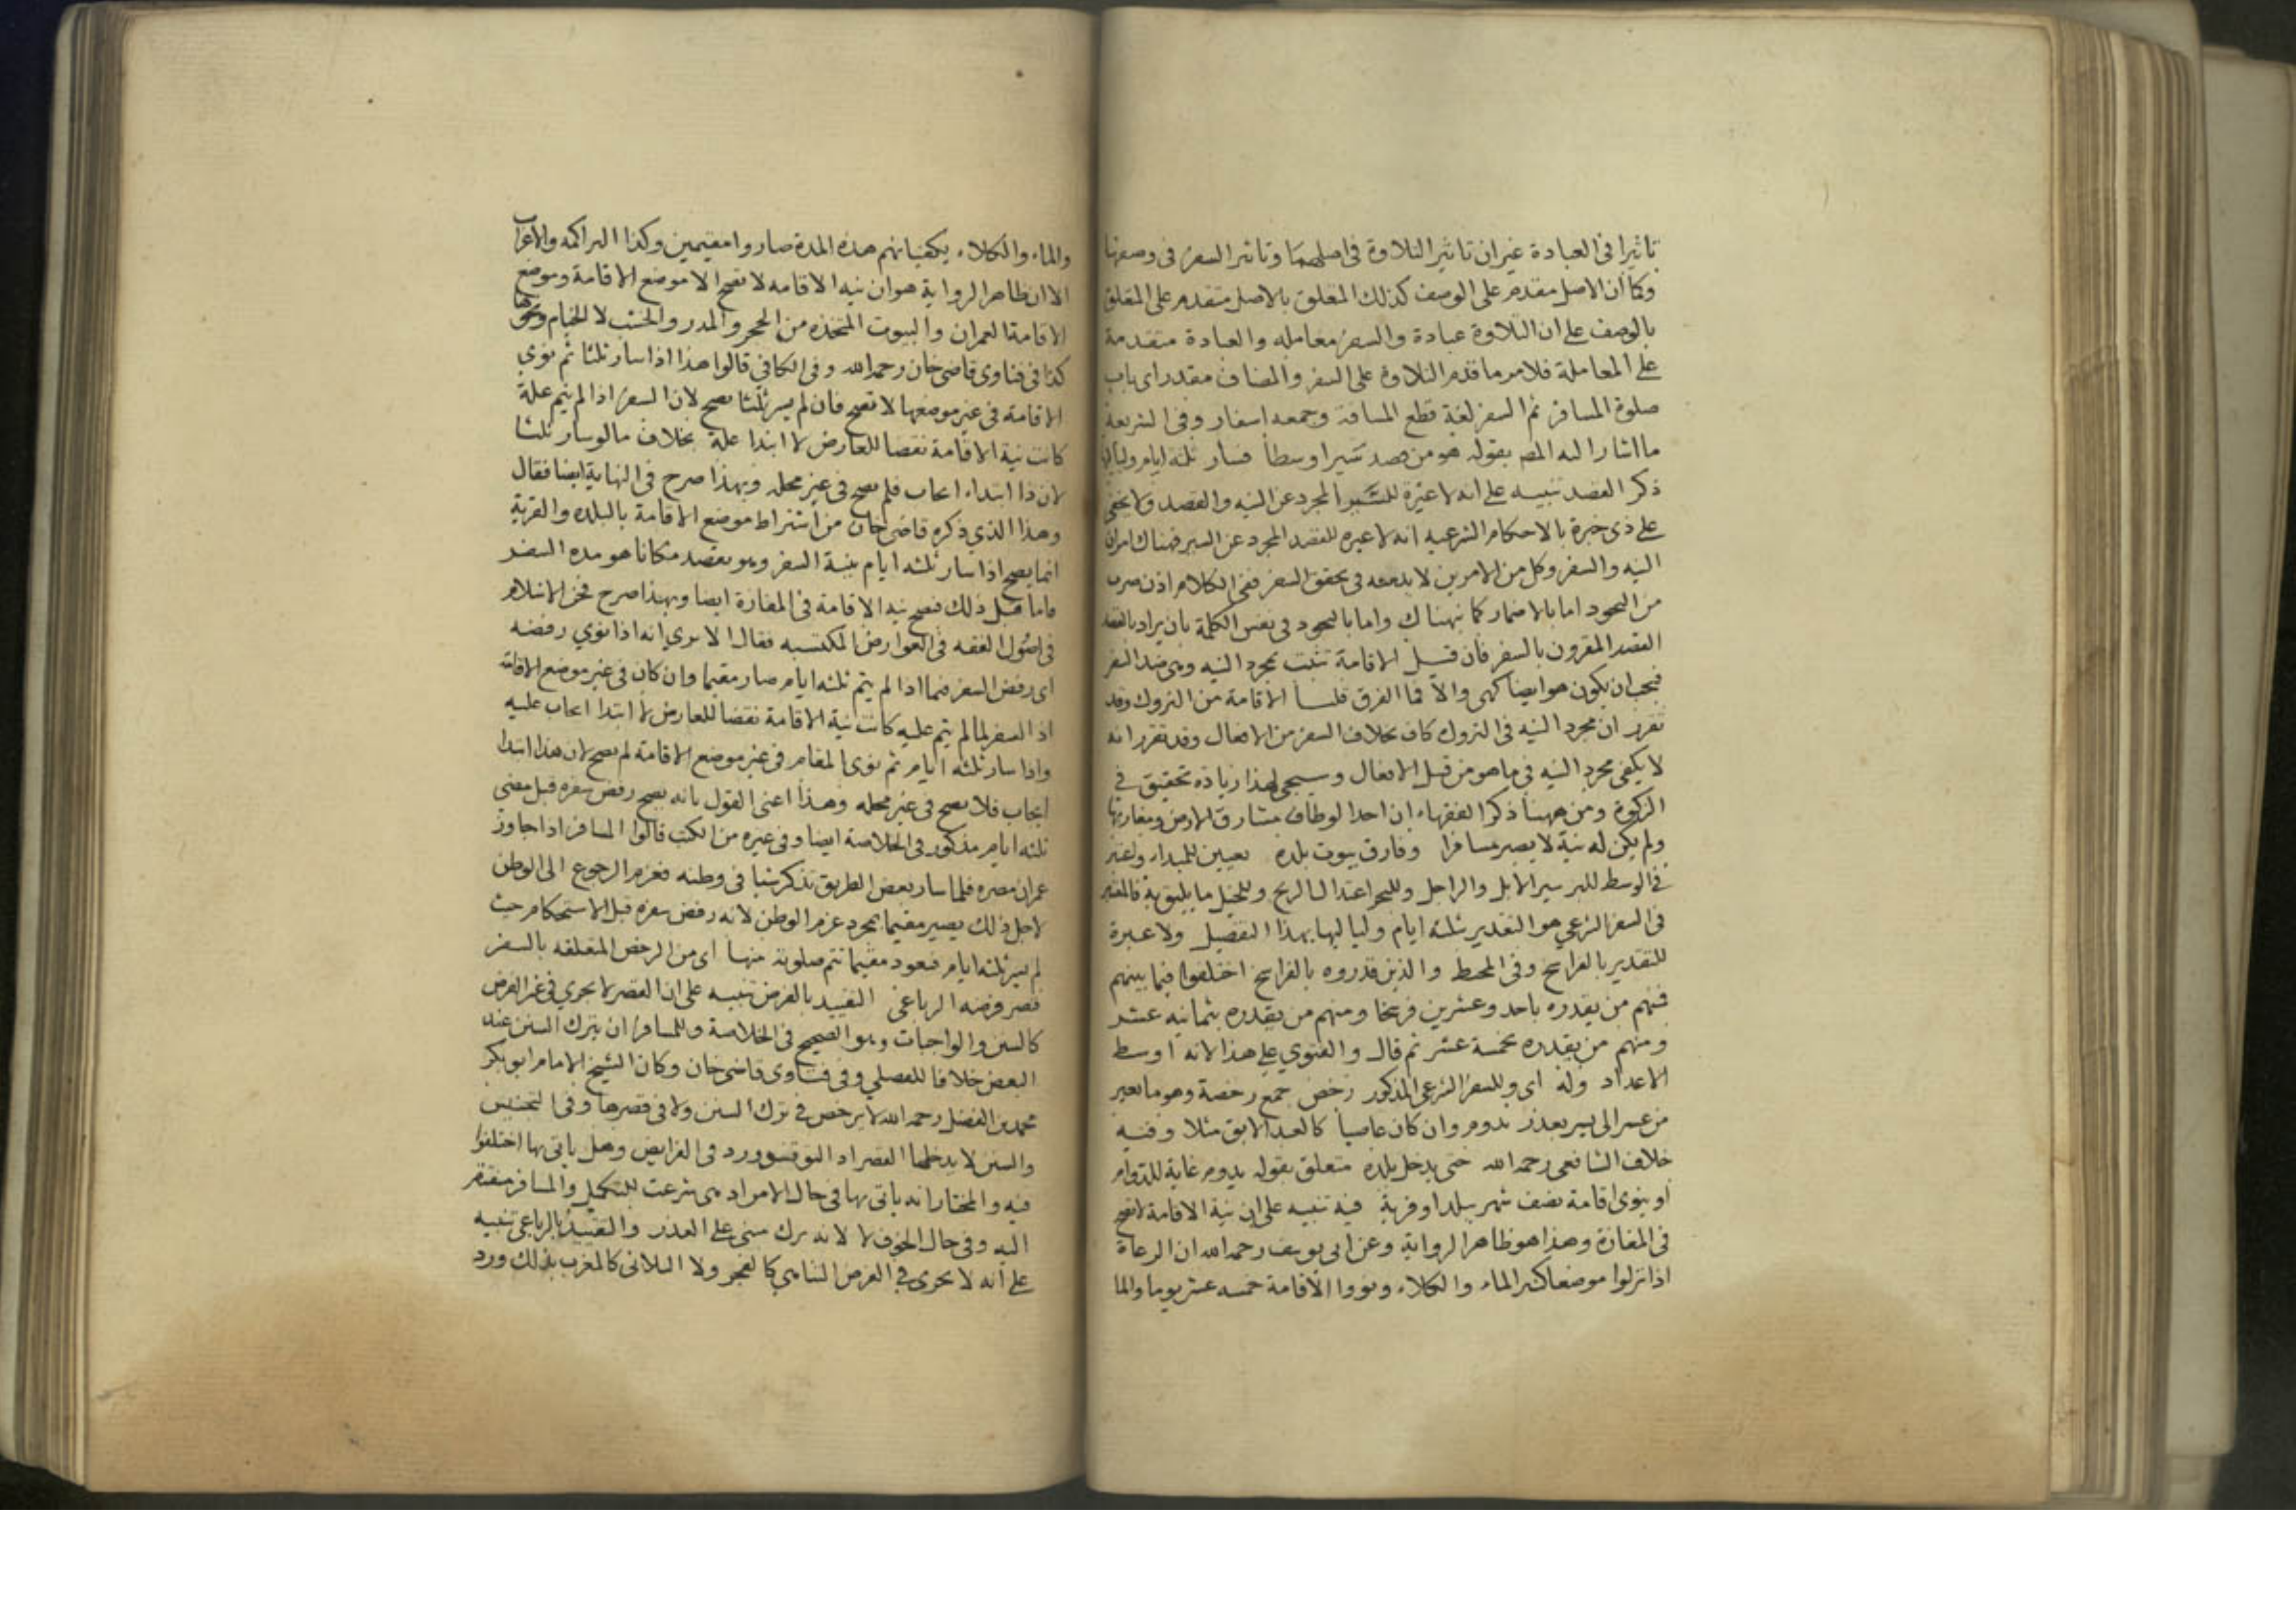 تاثيرا فى العبادة غير ان تاثير التلاوة فى اصلهما وتاثير السفر فى وصفها
وكما ان الاصل مقدم على الوصف كذلك المتعلق بالاصل متقدم على المتعلق
بالوصف على ان التلاوة عبادة والسفر معامله والعبادة متقدمة
على المعاملة فلامر ما قدم التلاوة على السفر والمضاف مقدر اى باب
صلوة المسافر ثم السفر لغة قطع المسافة وجمعه اسفار وفى الشريعة
ما اشار اليه المص بقوله هو من قصد سيرا وسطا فسار ثلثه ايام ولياليها
ذكر القصد تنبيه على انه لا عبرة للسير المجرد عن النيه والقصد ولا يخفى
على ذى خبرة بالاحكام الشرعيه انه لا عبره للقصد المجرد عن السير فهناك امران
النيه والسفر وكل من الامرين لا بد معه فى تحقق السفر ففى الكلام اذن ضرب
من التجوز اما بالاضمار كما نبهناك واما بالتجوز فى نفس الكلمة بان يراد بالقصد
القصد المقرون بالسفر فان قيل الاقامة تثبت بمجرد النيه وهى ضد السفر
فيجب ان يكون هو ايضا كهى والا فما الفرق قلنا الاقامة من التروك وقد
تقرر ان مجرد النيه فى التروك كاف بخلاف السفر من الافعال وقد تقرر انه
لا يكفى مجرد النيه فى ما هو من قبل الافعال وسيجى لهذا زيادة تحقيق فى
الزكوة ومن ههنا ذكر الفقهاء ان احدا لو طاف مشارق الارض ومغاربها
ولم يكن له نية لا يصير مسافرا وفارق بيوت بلده تعيين للمبداء واعتبر
فى الوسط للبر سير الابل والراجل وللبحر اعتدال الريح وللجبل ما يليق به فالمعتبر
فى السفر الشرعي هو التقدير بثلثه ايام ولياليها بهذا التفصيل ولا عبرة
للتقدير بالفراسخ وفى المحيط والذين قدروه بالفراسخ اختلفوا فيما بينهم
فمنهم من يقدره باحد وعشرين فرسخا ومنهم من يقدره بثمانيه عشر
ومنهم من يقدره بخمسة عشر ثم قال والفتوى على هذا لانه اوسط
الاعداد وله اى وللسفر الشرعى المذكور رخص جمع رخصة وهو ما تغير
من عسر الى يسر بعذر تدوم وان كان عاصيا كالعبد الابق مثلا وفيه
خلاف الشافعى رحمه الله حتى يدخل بلده متعلق بقوله يدوم غاية للدوام
او ينوى اقامة نصف شهر ببلد او قرية فيه تنبيه على ان نية الاقامة لا تصح
فى المفازة وهذا هو ظاهر الرواية وعن ابى يوسف رحمه الله ان الرعاة
اذا نزلوا موضعا كثير الماء والكلاء ونووا الاقامة خمسه عشر يوما والما
والماء والكلاء يكفيانهم هذه المدة صاروا مقيمين وكذا التراكمه والاعراب
الا ان ظاهر الرواية هو ان نيه الاقامه لا تصح الا موضع الاقامة وموضع
الاقامة العمران والبيوت المتخذه من الحجر والمدر والخشب لا الخيام ونحوها
كذا فى فتاوى قاضى خان رحمه الله وفى الكافى قالوا هذا اذا سار ثلثا ثم نوى
الاقامة فى غير موضعها لا تصح فان لم يسر ثلثا تصح لان السفر اذا لم يتم علة
كانت نية الاقامة نقضا للعارض لا ابتدا علة بخلاف ما لو سار ثلثا
لان ذا ابتداء ايجاب فلم يصح فى غير محله وبهذا صرح فى النهاية ايضا فقال
وهذا الذي ذكره قاضى خان من اشتراط موضع الاقامة بالبلده والقرية
انما يصح اذا سار ثلثه ايام بنية السفر وهو يقصد مكانا هو مده السفر
فاما قبل ذلك فتصح نيه الاقامة فى المفازة ايضا وبهذا صرح فخر الاسلام
فى اصول الفقه فى العوارض المكتسبه فقال الا يرى انه اذا نوى رفضه
اى رفض السفر فيما اذا لم يتم ثلثه ايام صار مقيما وان كان فى غير موضع الاقامة
اذ السفر لما لم يتم عليه كانت نية الاقامة نقضا للعارض لا ابتدا ايجاب عليه
واذا سار ثلثه ايام ثم نوى المقام فى غير موضع الاقامة لم يصح لان هذا ابتدا
ايجاب فلا يصح فى غير محله وهذا اعنى القول بانه يصح رفض سفره قبل مضى
ثلثه ايام مذكور فى الخلاصة ايضا وفى غيره من الكتب قالوا المسافر اذا جاوز
عمران مصره فلما سار بعض الطريق تذكر شيا فى وطنه فعزم الرجوع الى الوطن
لاجل ذلك يصير مقيما بمجرد عزم الوطن لانه رفض سفره قبل الاستحكام حيث
لم يسر ثلثه ايام فيعود مقيما تتم صلوته منها اى من الرخص المتعلقه بالسفر
قصر فرضه الرباعى التقييد بالفرض تنبيه على ان القصر لا يجرى فى غير الفرض
كالسنن والواجبات وهو الصحيح فى الخلاصة وللمسافر ان يترك السنن عند
البعض خلافا للفضلي وفى فتاوى قاضى خان وكان الشيخ الامام ابو بكر
محمد بن الفضل رحمه الله لا يرخص فى ترك السنن ولا فى قصرها وفى التجنيس
والسنن لا يدخلها القصر اذ التوقيف ورد فى الفرايض وهل ياتى بها اختلفوا
فيه والمختار انه ياتى بها فى حال الامن اذ هى شرعت للتكميل والمسافر مفتقر
اليه وفى حال الخوف لا لانه ترك مبنى على العذر والتقييد بالرباعى تنبيه
على انه لا يجرى فى الفرض الثنايى كالفجر ولا الثلاثى كالمغرب بذلك ورد